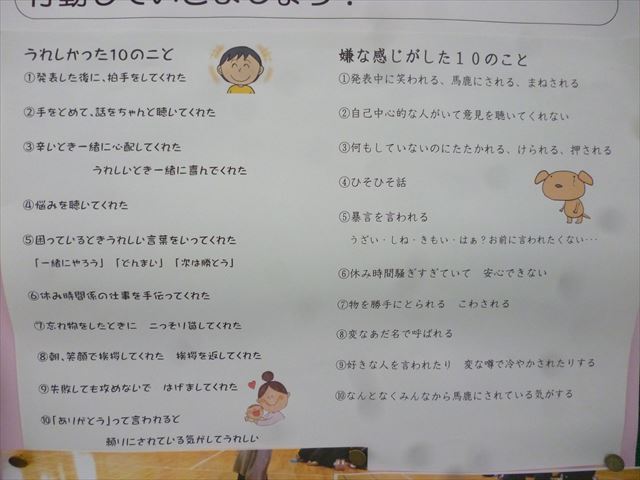 行動していきましょう！
うれしかった10のこと
①発表した後に、拍手をしてくれた
②手をとめて、話をちゃんと聴いてくれた
③辛いとき一緒に心配してくれた
うれしいとき一緒に喜んでくれた
④悩みを聴いてくれた
⑤困っているときうれしい言葉をいってくれた
「一緒にやろう」「どんまい」「次は勝とう」
⑥休み時間係の仕事を手伝ってくれた
⑦忘れ物をしたときに　こっそり貸してくれた
⑧朝、笑顔で挨拶してくれた　挨拶を返してくれた
⑨失敗しても攻めないで　はげましてくれた
⑩「ありがとう」って言われると
頼りにされている気がしてうれしい
嫌な感じがした１０のこと
①発表中に笑われる、馬鹿にされる、まねされる
②自己中心的な人がいて意見を聴いてくれない
③何もしていないのにたたかれる、けられる、押される
④ひそひそ話
⑤暴言を言われる
うざい・しね・きもい・はぁ？お前に言われたくない･･･
⑥休み時間騒ぎすぎていて　安心できない
⑦物を勝手にとられる　こわされる
⑧変なあだ名で呼ばれる
⑨好きな人を言われたり　変な噂で冷やかされたりする
⑩なんとなくみんなから馬鹿にされている気がする